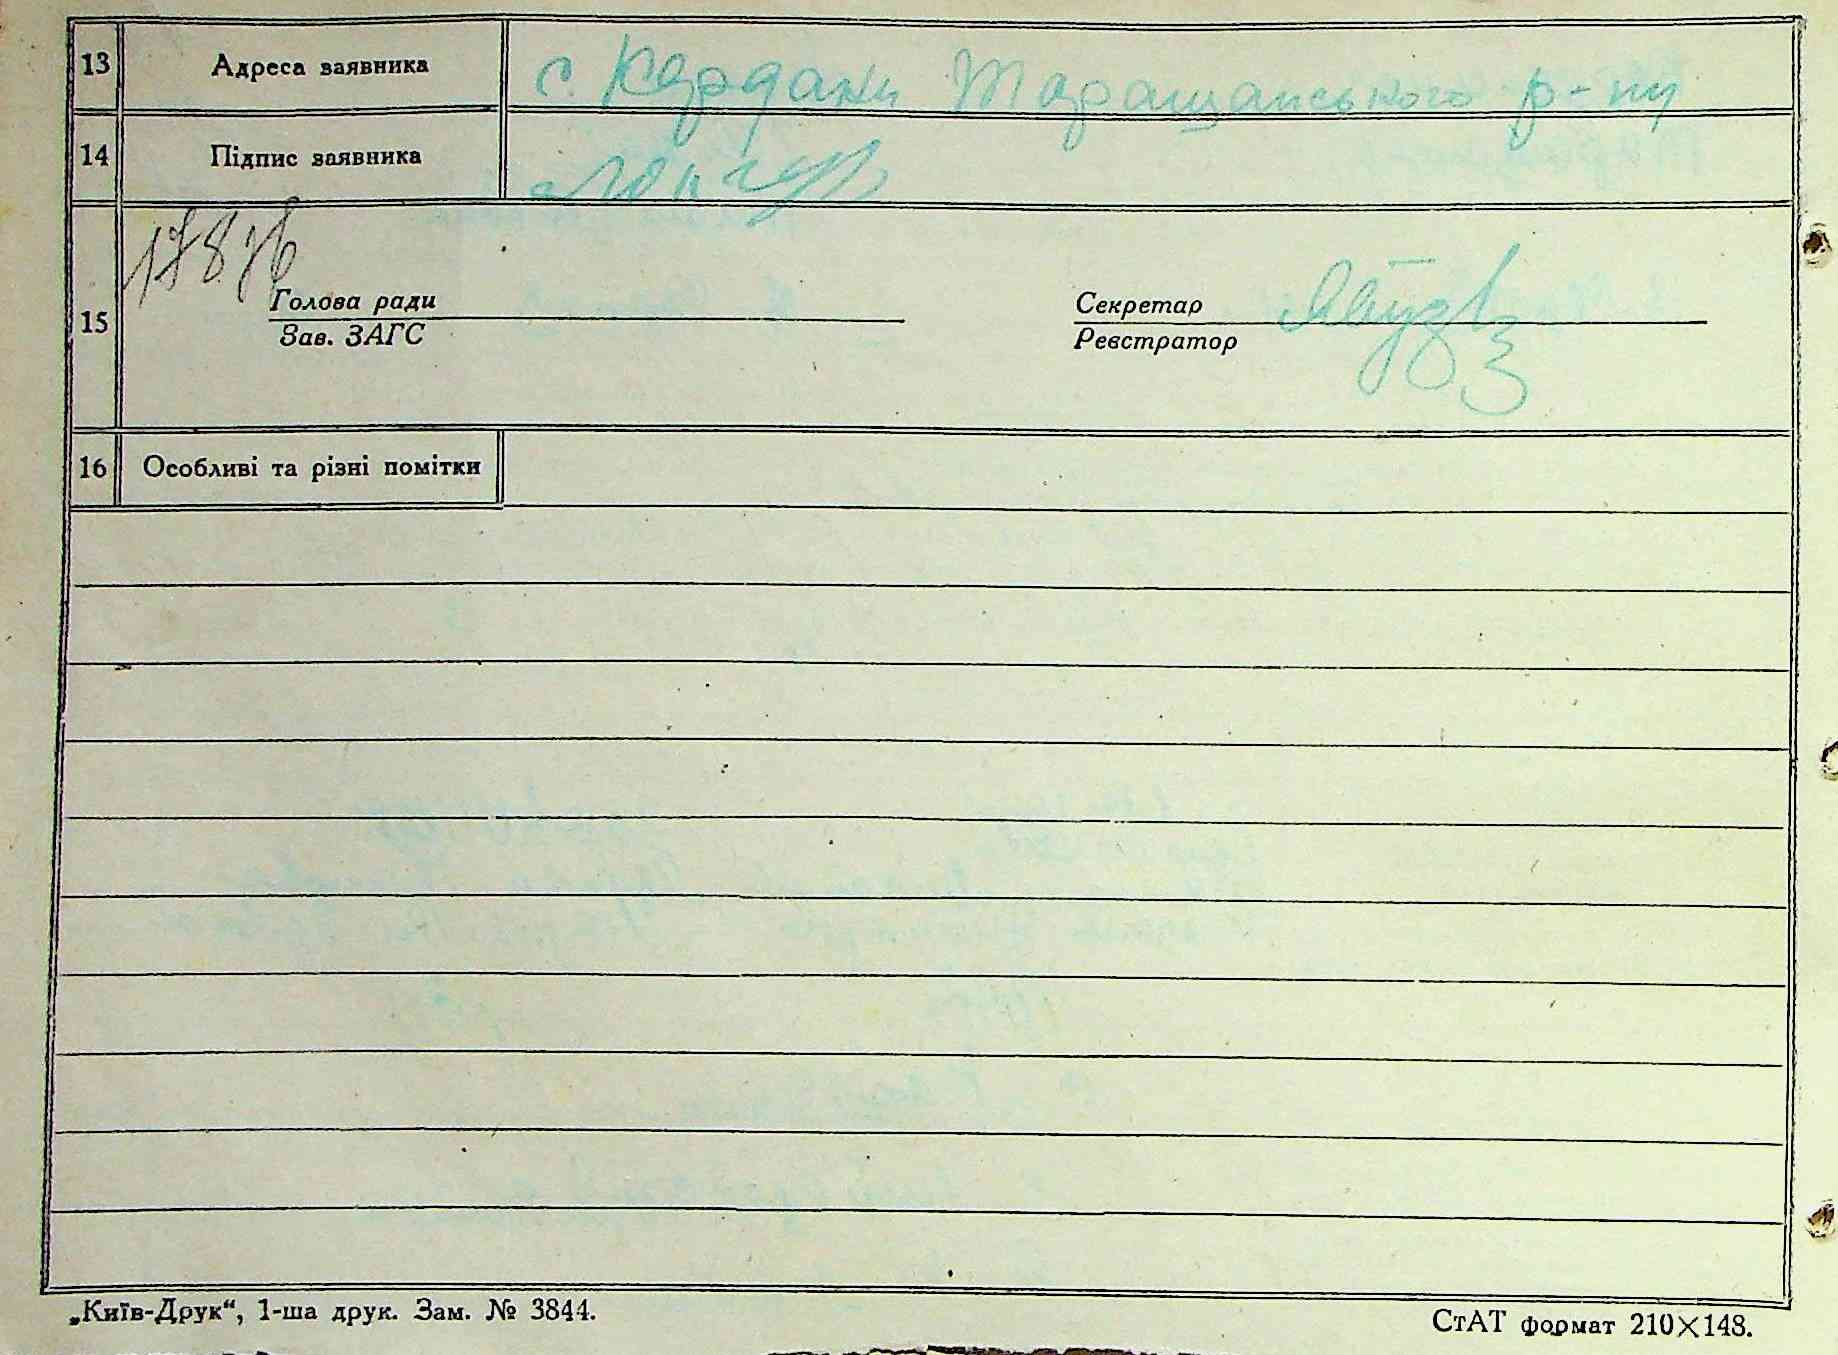 13 Адреса заявника с. Кердани Таращанського р-ну
14 Підпис заявника
15
Голова ради
Зав. ЗАГС
Секретар
Реєстратор
16 Особливі та різні помітки
„Київ-Друк“, 1-ша друк. Зам. № 3844.
СтАТ формат 210×148.